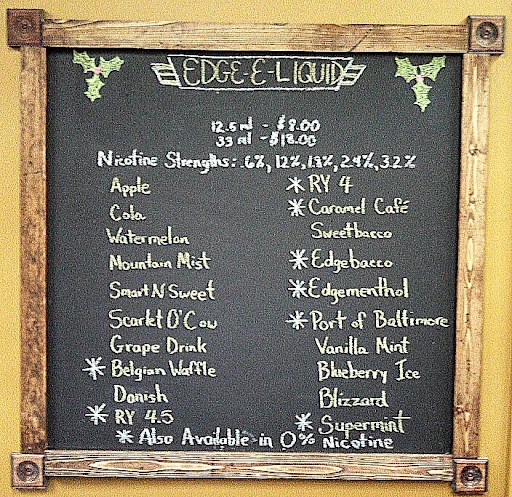 EDGE-E-LIQUID
12.5 ml - $8.00
33 ml - $18.00
Nicotine Strengths: .6%, 1.2%, 1.8%, 2.4%, 3.2%
Apple
Cola
Watermelon
Mountain Mist
Smart N Sweet
Scarlet O'Cow
Grape Drink
* Belgian Waffle
Danish
* RY 4.5
* RY 4
* Caramel Café
Sweetbacco
* Edgebacco
* Edgementhol
* Port of Baltimore
Vanilla Mint
Blueberry Ice
Blizzard
* Supermint
* Also Available in 0% Nicotine